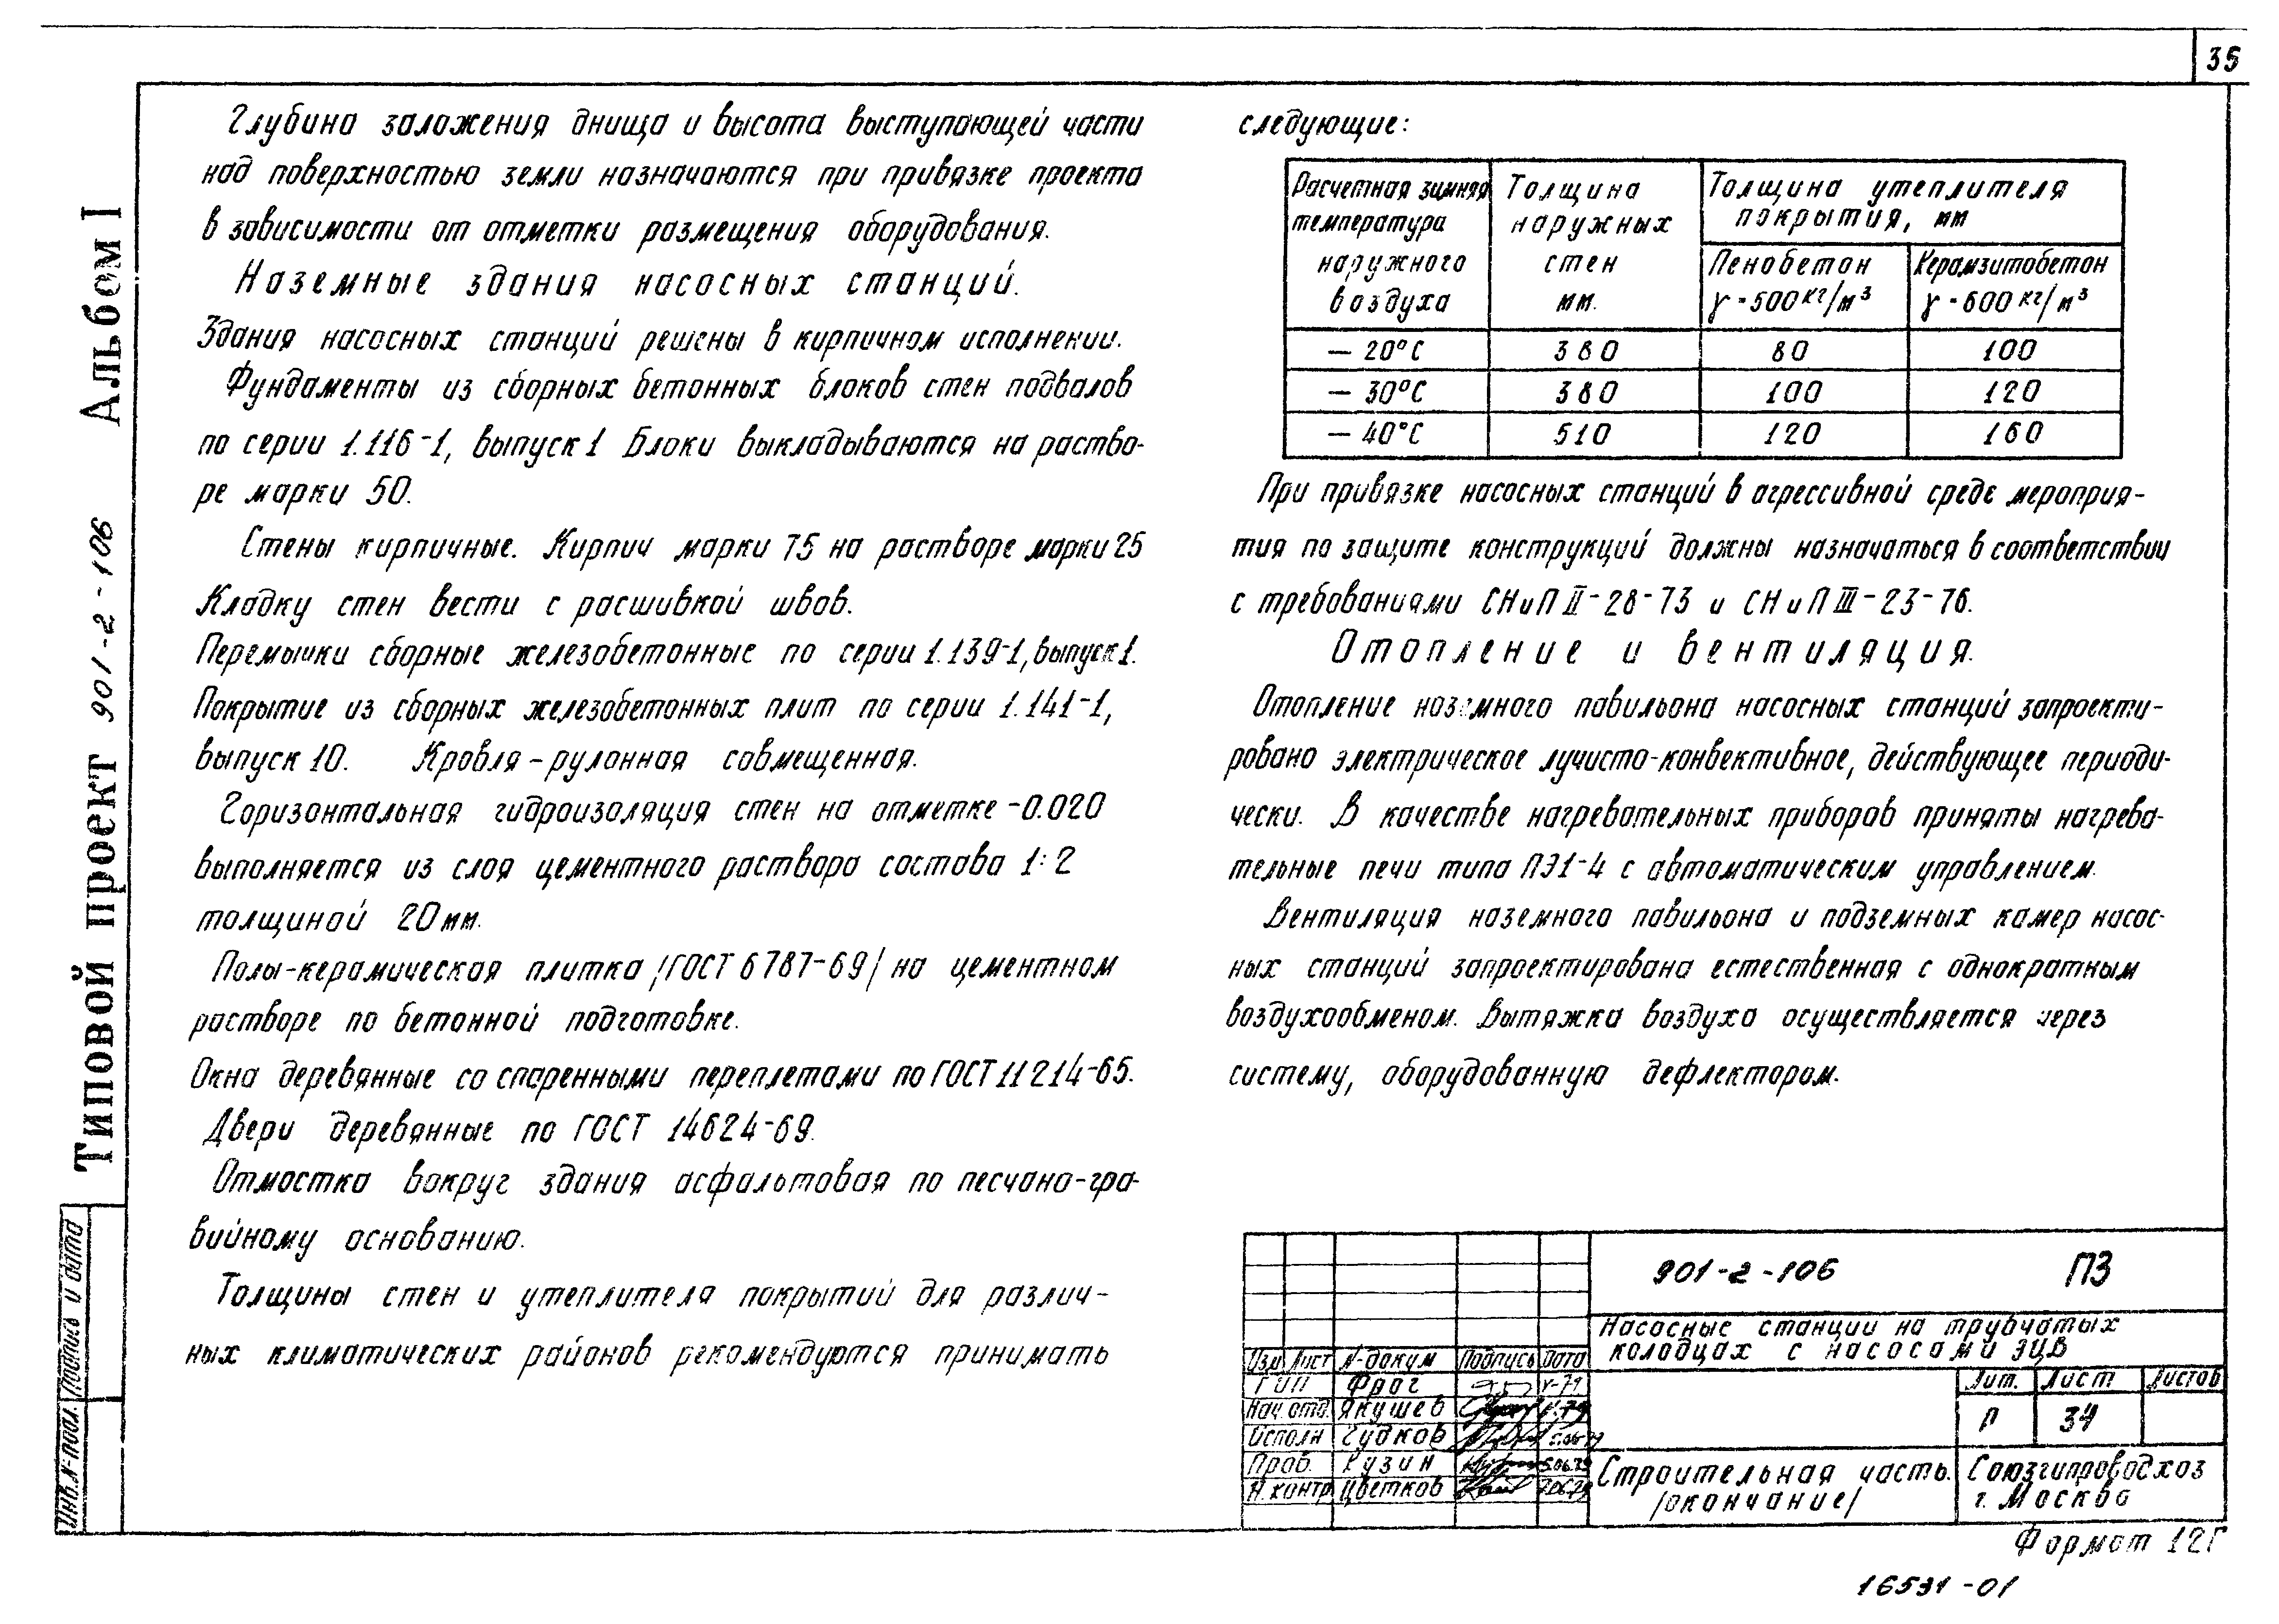 35
Глубина заложения днища и высота выступающей части
над поверхностью земли назначаются при привязке проекта
в зависимости от отметки размещения оборудования.
Наземные здания насосных станций.
Здания насосных станций решены в кирпичном исполнении.
Фундаменты из сборных бетонных блоков стен подвалов
по серии 1.116-1, выпуск 1 Блоки выкладываются на раство-
ре марки 50.
Стены кирпичные. Кирпич марки 75 на растворе марки 25
Кладку стен вести с расшивкой швов.
Перемычки сборные железобетонные по серии 1.139-1, выпуск 1.
Покрытие из сборных железобетонных плит по серии 1.141-1,
выпуск 10. Кровля - рулонная совмещенная.
Горизонтальная гидроизоляция стен на отметке -0.020
выполняется из слоя цементного раствора состава 1:2
толщиной 20мм.
Полы-керамическая плитка /ГОСТ 6787-69/ на цементном
растворе по бетонной подготовке.
Окна деревянные со спаренными переплетами по ГОСТ 11214-65.
Двери деревянные по ГОСТ 14624-69.
Отмостка вокруг здания асфальтовая по песчано-гра-
вийному основанию.
Толщины стен и утеплителя покрытий для различ-
ных климатических районов рекомендуются принимать
следующие:
Расчетная зимняя температура наружного воздуха
Толщина наружных стен мм.
Толщина утеплителя покрытия, мм
Пенобетон γ-500кг/м³
Керамзитобетон γ-600кг/м³
— 20°С 380 80 100
— 30°С 380 100 120
— 40°С 510 120 160
При привязке насосных станций в агрессивной среде мероприя-
тия по защите конструкций должны назначаться в соответствии
с требованиями СНиП II-28-73 и СНиП III-23-76.
Отопление и вентиляция.
Отопление наземного павильона насосных станций запроекти-
ровано электрическое лучисто-конвективное, действующее периоди-
чески. В качестве нагревательных приборов приняты нагрева-
тельные печи типа ПЭ1-4 с автоматическим управлением.
Вентиляция наземного павильона и подземных камер насос-
ных станций запроектирована естественная с однократным
воздухообменом. Вытяжка воздуха осуществляется через
систему, оборудованную дефлектором.
Типовой проект 901-2-106 Альбом I
Инв.N-подл. Подпись и дата
901-2-106 ПЗ
Насосные станции на трубчатых
колодцах с насосами ЭЦВ
Изм Лист N-докум Подпись Дата
ГИП Фрог V-79
Нач.отд. Якушев V-79
Исполн Гудков 5.06.79
Пров. Кузин 5.06.79
Н.контр Цветков 7.06.79
Лит. Лист Листов
Р 34
Строительная часть.
/окончание/
Союзгипроводхоз
г. Москва
Формат 12Г
16531-01